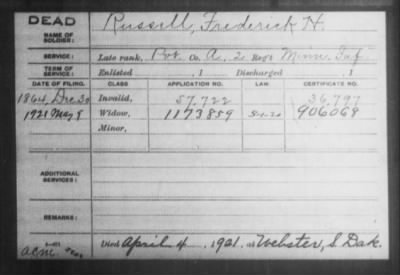 DEAD
NAME OF SOLDIER: Russell, Frederick H.
SERVICE: Late rank, Pvt. Co. A, 2 Reg't Minn. Inf.
TERM OF SERVICE: Enlisted , 1 Discharged , 1
DATE OF FILING. CLASS APPLICATION NO. LAW. CERTIFICATE NO.
1864 Dec 30 Invalid, 57,722 36,797
1921 May 9 Widow, 1173859 906068
Minor,
ADDITIONAL SERVICES:
REMARKS:
Died April 4, 1921, at Webster, S Dak.